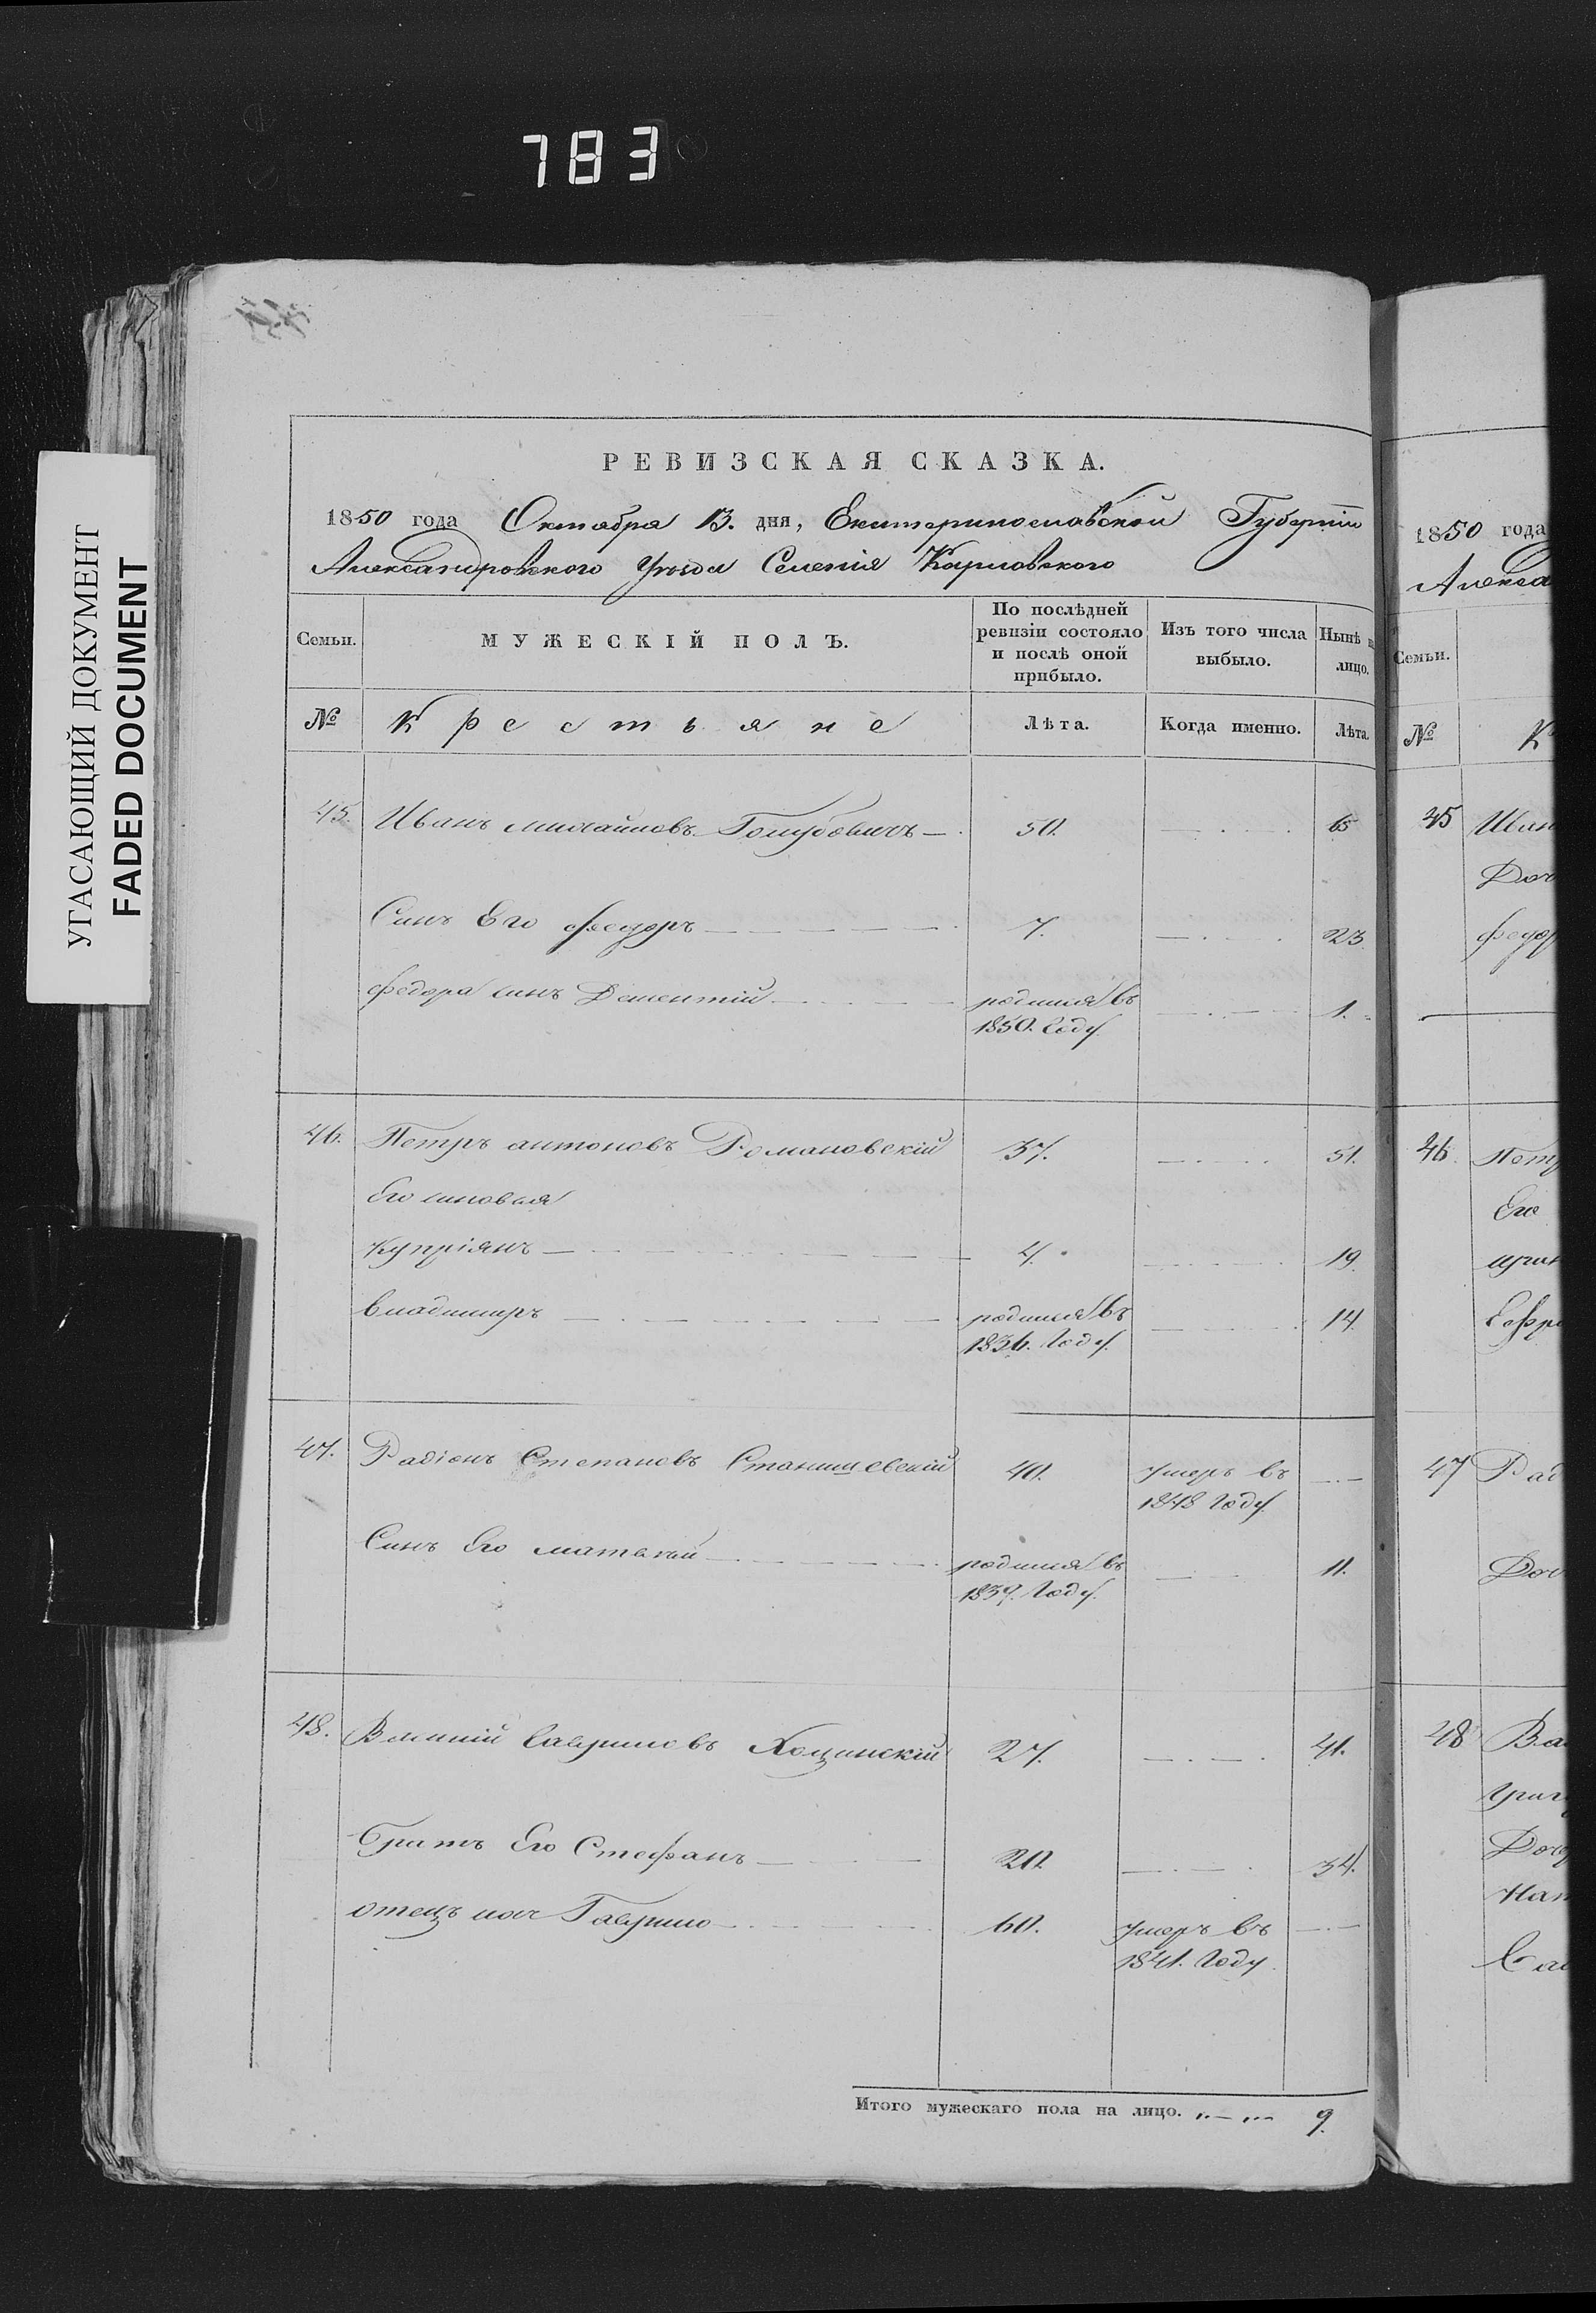 783
УГАСАЮЩИЙ ДОКУМЕНТ
FADED DOCUMENT
РЕВИЗСКАЯ СКАЗКА.
1850 года Октября 13. дня, Екатеринославской Губернiи
Александровского Уѣзда Селенiя Карловского
Семьи.
МУЖЕСКIЙ ПОЛЪ.
По послѣдней ревизiи состояло и послѣ оной прибыло.
Изъ того числа выбыло.
Нынѣ на лицо.
№
Крестьяне
Лѣта.
Когда именно.
Лѣта.
45. Иванъ михайловъ Голубовичъ 50. 65
Синъ Его федоръ 7. 23
федора синъ Дементiй родился въ 1.
1850. Году.
46. Петръ антоновъ Романовскiй 37. 51.
Его синовья
купрiянъ 4. 19.
владимиръ родился въ 14.
1836. Году.
47. Радiонъ Степановъ Станишевскiй 40. Умеръ въ
1848 Году.
Синъ Его матвѣй родился въ 11.
1839. Году.
48. Гавриловъ 27. 41.
Братъ Его Стефанъ 20. 34.
отецъ ихъ Гаврило 60. Умеръ въ
1841. Году.
Итого мужескаго пола на лицо. 9.
1850 года
Алекса
Семьи.
№ К
45 Иван
Доч
федор
46. Петр
Его
47 Рад
Доч
48 Ва